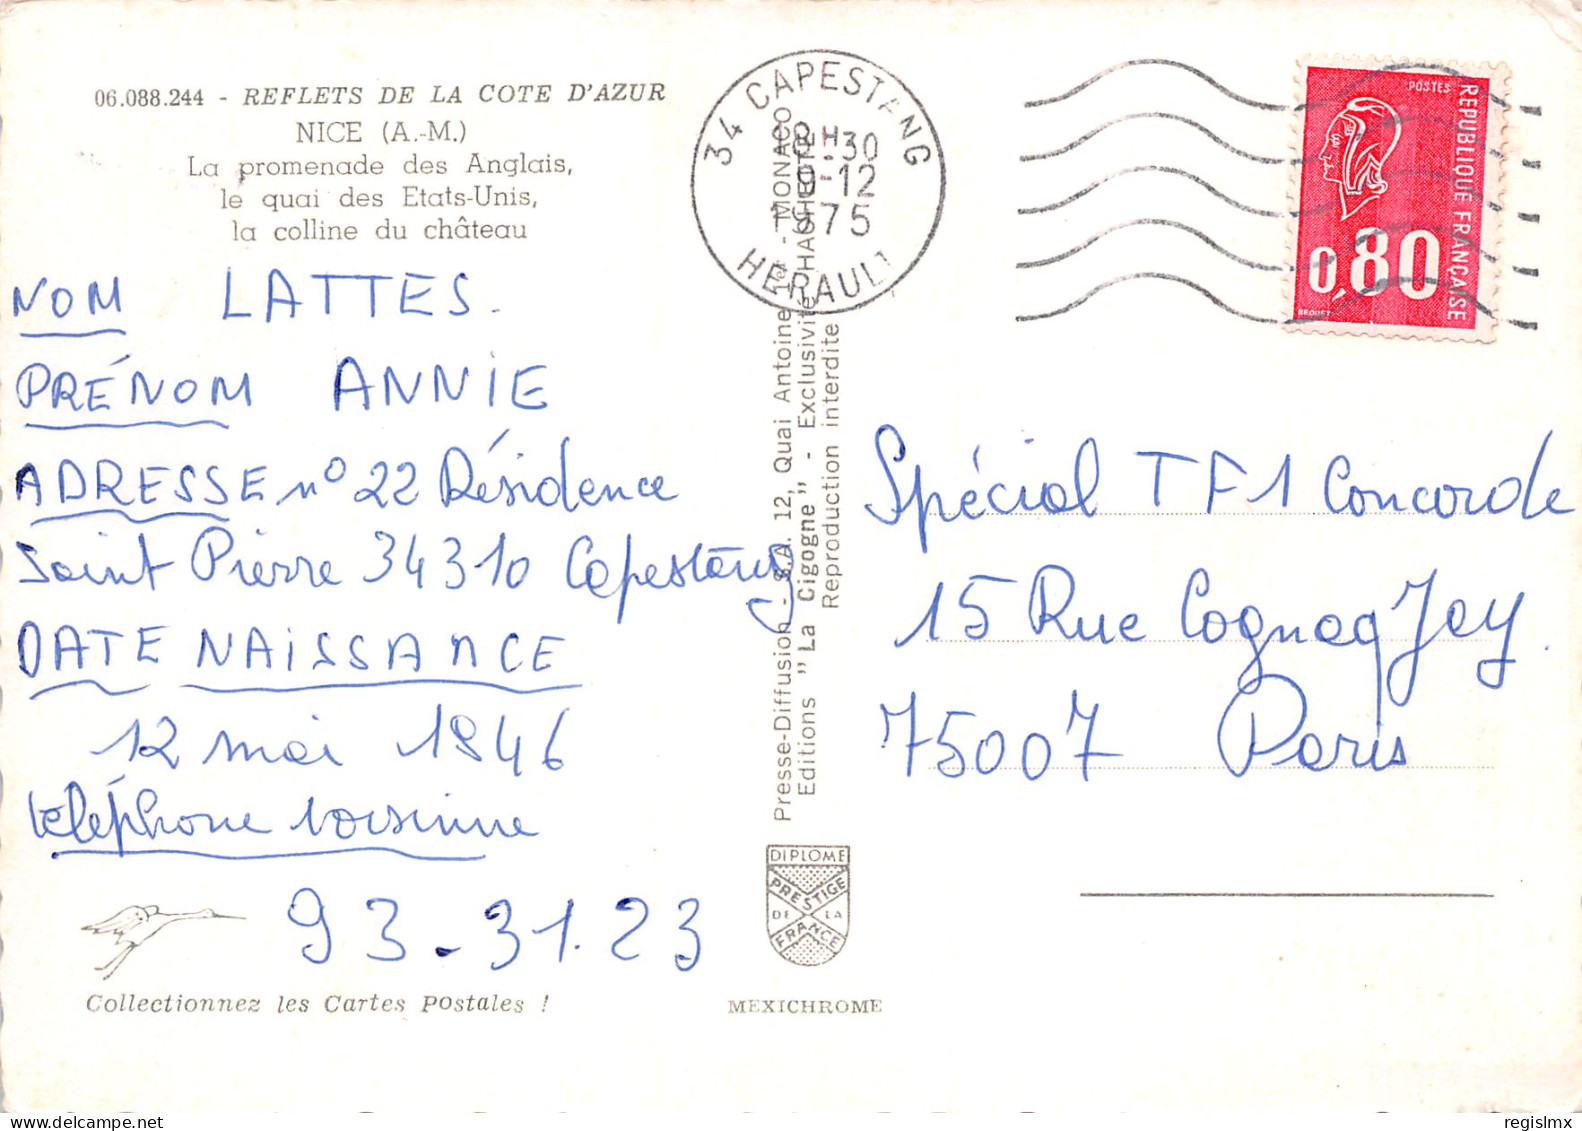 06.088.244 - REFLETS DE LA COTE D'AZUR
NICE (A.-M.)
La promenade des Anglais,
le quai des Etats-Unis,
la colline du château
NOM LATTES.
PRÉNOM ANNIE
ADRESSE nº 22 Résidence
Saint Pierre 34310 Capestang
DATE NAISSANCE
12 mai 1946
téléphone voisinne
93-31.23
Collectionnez les Cartes Postales !
MEXICHROME
DIPLOME
PRESTIGE
DE LA
FRANCE
Presse-Diffusion - S.A. 12, Quai Antoine 1er - MONACO
Editions "La Cigogne" - Exclusivité HACHETTE
Reproduction interdite
34 CAPESTANG
H 30
9-12
1975
HERAULT
POSTES
REPUBLIQUE FRANÇAISE
0,80
BEQUET
Spécial TF1 Concorde
15 Rue Cognacq Jay.
75007 Paris
regislmx